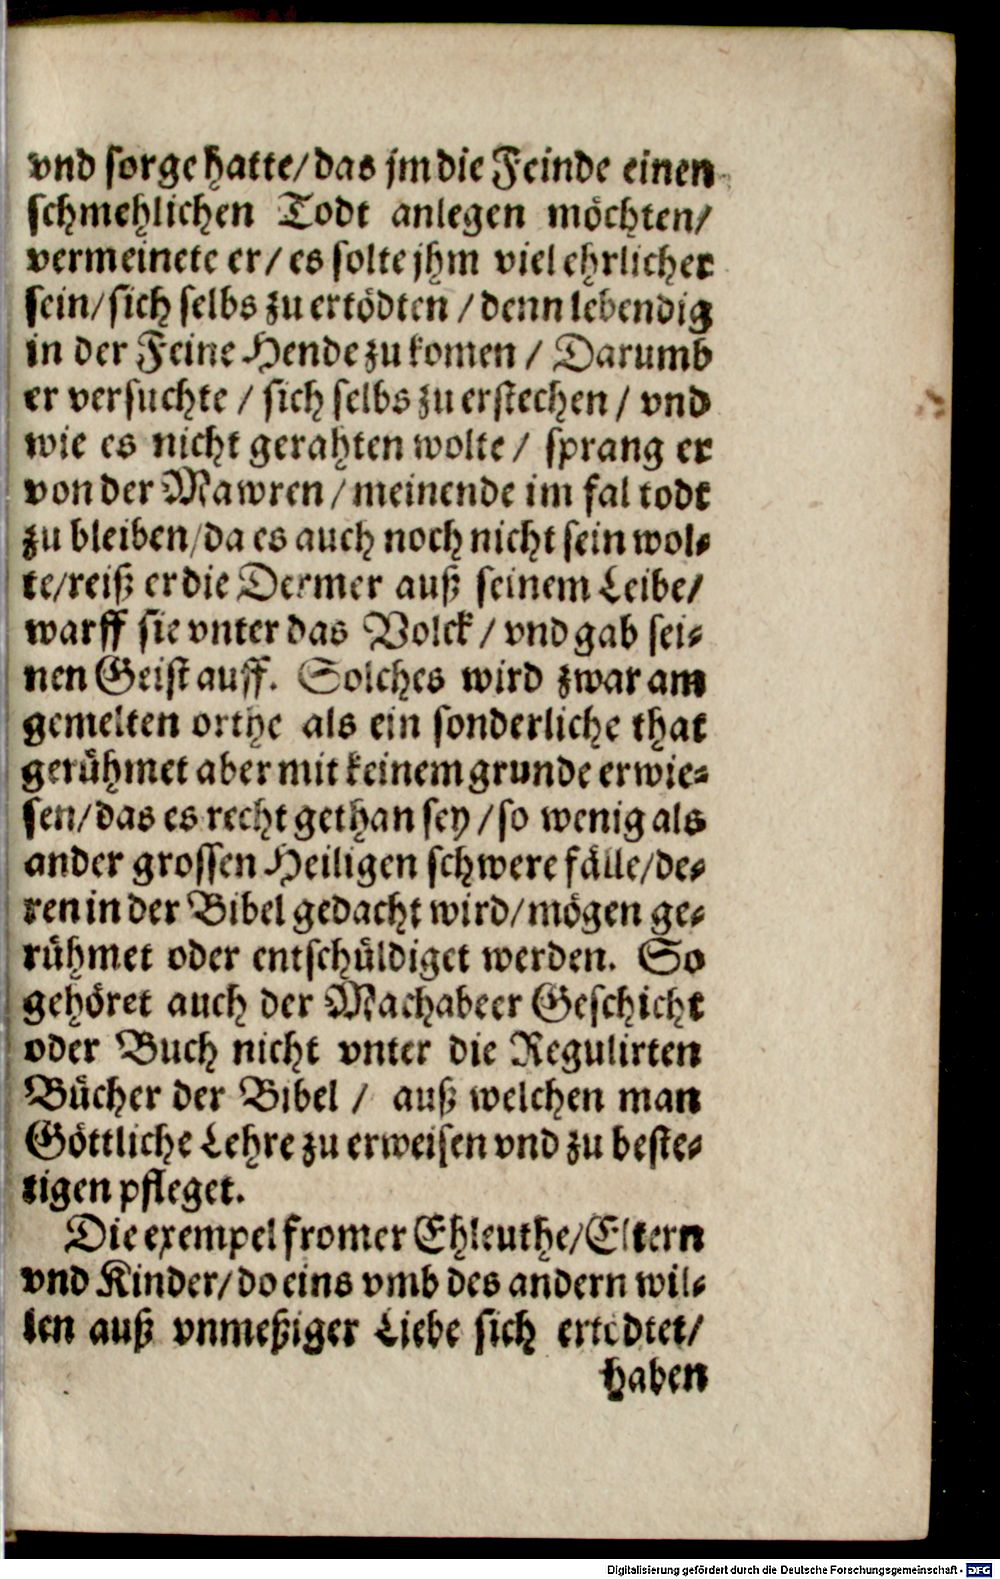 vnd sorge hatte/das jm die Feinde einen
schmehlichen Todt anlegen möchten/
vermeinete er/ es solte jhm viel ehrlicher
sein/sich selbs zu ertödten / denn lebendig
in der Feine Hende zu komen / Darumb
er versuchte / sich selbs zu erstechen / vnd
wie es nicht gerahten wolte / sprang er
von der Mawren / meinende im fal todt
zu bleiben/da es auch noch nicht sein wol-
te/reiß er die Dermer auß seinem Leibe/
warff sie vnter das Volck / vnd gab sei-
nen Geist auff. Solches wird zwar am
gemelten orthe als ein sonderliche that
gerühmet aber mit keinem grunde erwie-
sen/das es recht gethan sey / so wenig als
ander grossen Heiligen schwere fälle/de-
ren in der Bibel gedacht wird/mögen ge-
rühmet oder entschüldiget werden. So
gehöret auch der Machabeer Geschicht
oder Buch nicht vnter die Regulirten
Bücher der Bibel / auß welchen man
Göttliche Lehre zu erweisen vnd zu beste-
tigen pfleget.
Die exempel fromer Ehleuthe/Eltern
vnd Kinder/do eins vmb des andern wil-
len auß vnmeßiger Liebe sich ertödtet/
haben
Digitalisierung gefördert durch die Deutsche Forschungsgemeinschaft - DFG